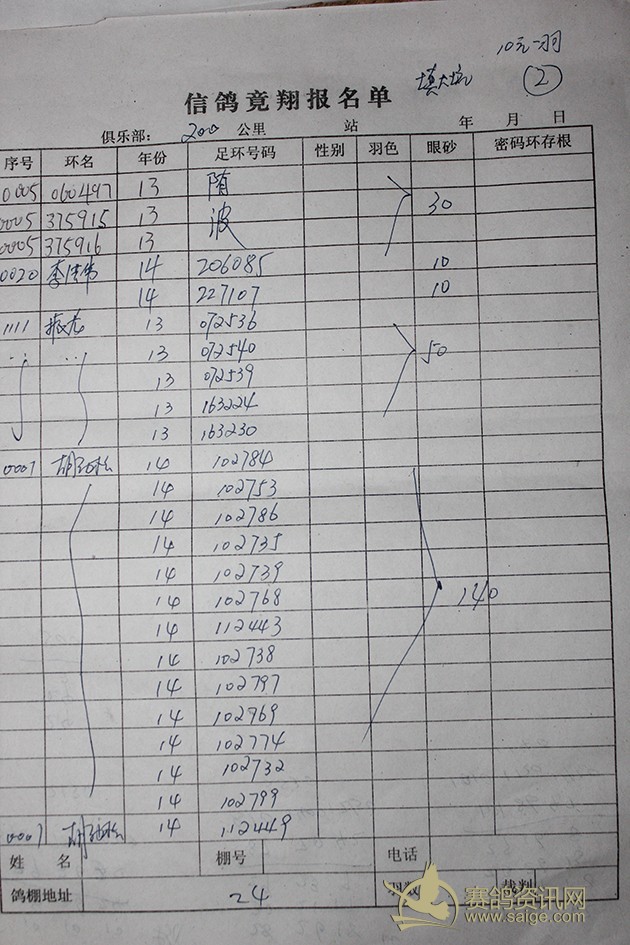 10元一羽
填大坑 ②
信鸽竞翔报名单
俱乐部: 200 公里 站 年 月 日
序号 环名 年份 足环号码 性别 羽色 眼砂 密码环存根
0005 060497 13 随
0005 375915 13 波 30
0005 375916 13
0020 14 206085 10
14 227107 10
1111 13 072536
13 072540 50
13 072539
13 163224
13 163230
0007 胡 14 102784
14 102753
14 102786
14 102735
14 102739
14 102768 140
14 112443
14 102738
14 102797
14 102969
14 102774
14 102732
14 102799
0007 胡 14 112449
姓名 棚号 电话
鸽棚地址 24 羽数 裁判
赛鸽资讯网
www.saige.com